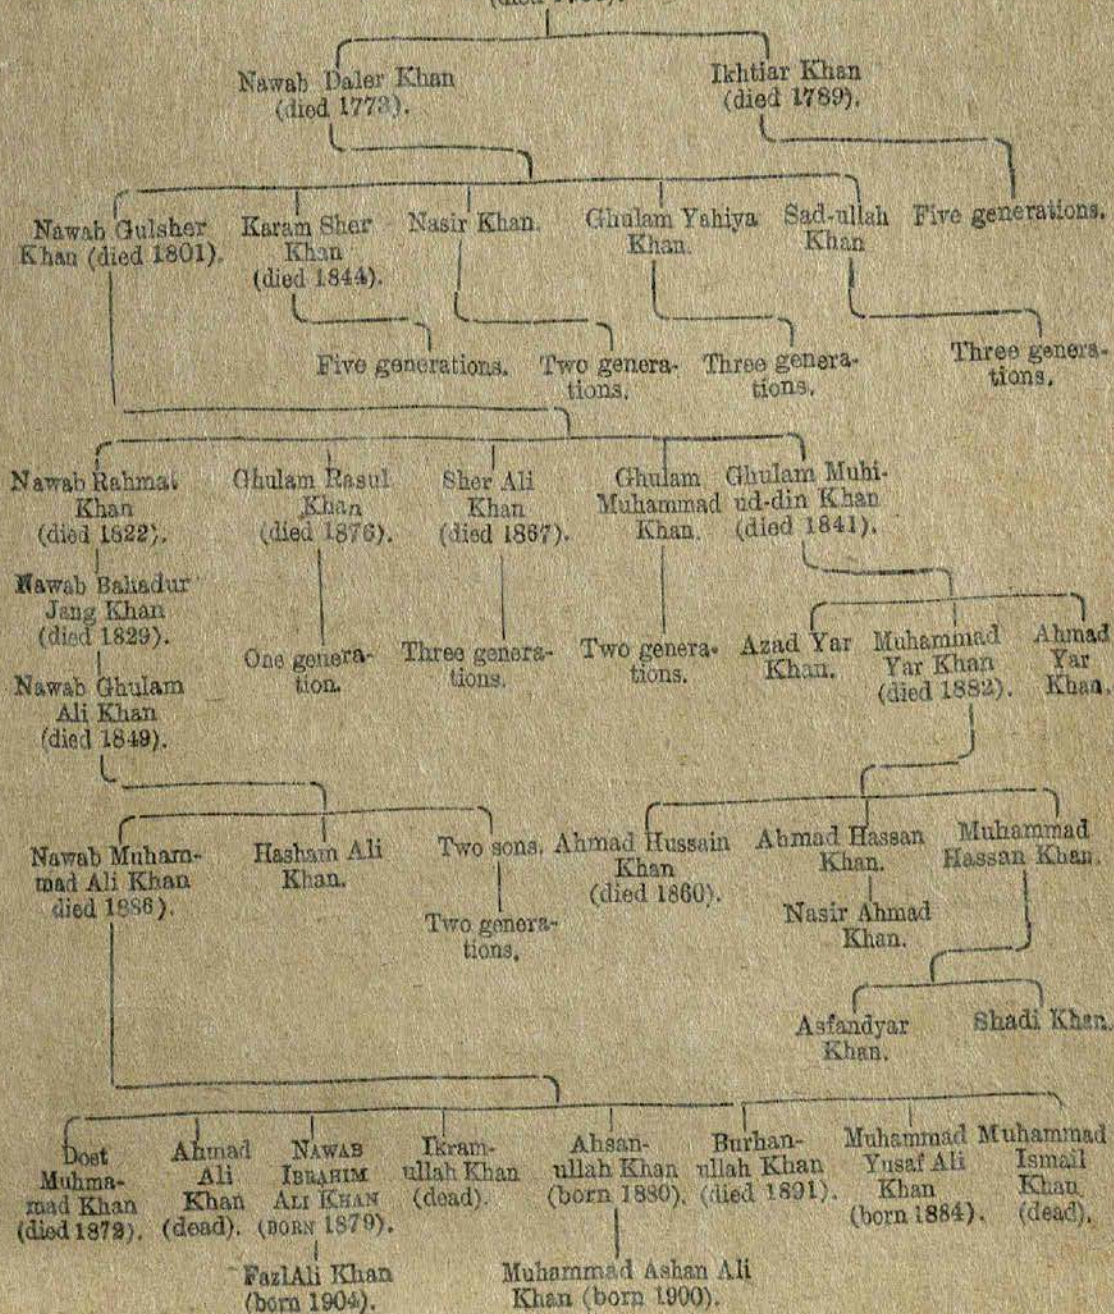 Nawab Daler Khan
(died 1773).
Ikhtiar Khan
(died 1789).
Nawab Gulsher
Khan (died 1801).
Karam Sher
Khan
(died 1844).
Nasir Khan.
Ghulam Yahiya
Khan.
Sad-ullah
Khan
Five generations.
Five generations.
Two genera-
tions.
Three genera-
tions.
Three genera-
tions.
Nawab Rahmat
Khan
(died 1822).
Ghulam Rasul
Khan
(died 1876).
Sher Ali
Khan
(died 1867).
Ghulam
Muhammad
Khan.
Ghulam Muhi-
ud-din Khan
(died 1841).
Nawab Bahadur
Jang Khan
(died 1829).
One genera-
tion.
Three genera-
tions.
Two genera-
tions.
Azad Yar
Khan.
Muhammad
Yar Khan
(died 1882).
Ahmad
Yar
Khan.
Nawab Ghulam
Ali Khan
(died 1849).
Nawab Muham-
mad Ali Khan
died 1886).
Hasham Ali
Khan.
Two sons.
Two genera-
tions.
Ahmad Hussain
Khan
(died 1860).
Ahmad Hassan
Khan.
Nasir Ahmad
Khan.
Muhammad
Hassan Khan.
Asfandyar
Khan.
Shadi Khan.
Dost
Muhma-
mad Khan
(died 1872).
Ahmad
Ali
Khan
(dead).
NAWAB
IBRAHIM
ALI KHAN
(BORN 1879).
Ikram-
ullah Khan
(dead).
Ahsan-
ullah Khan
(born 1880).
Burhan-
ullah Khan
(died 1891).
Muhammad
Yusaf Ali
Khan
(born 1884).
Muhammad
Ismail
Khan
(dead).
FazlAli Khan
(born 1904).
Muhammad Ashan Ali
Khan (born 1900).